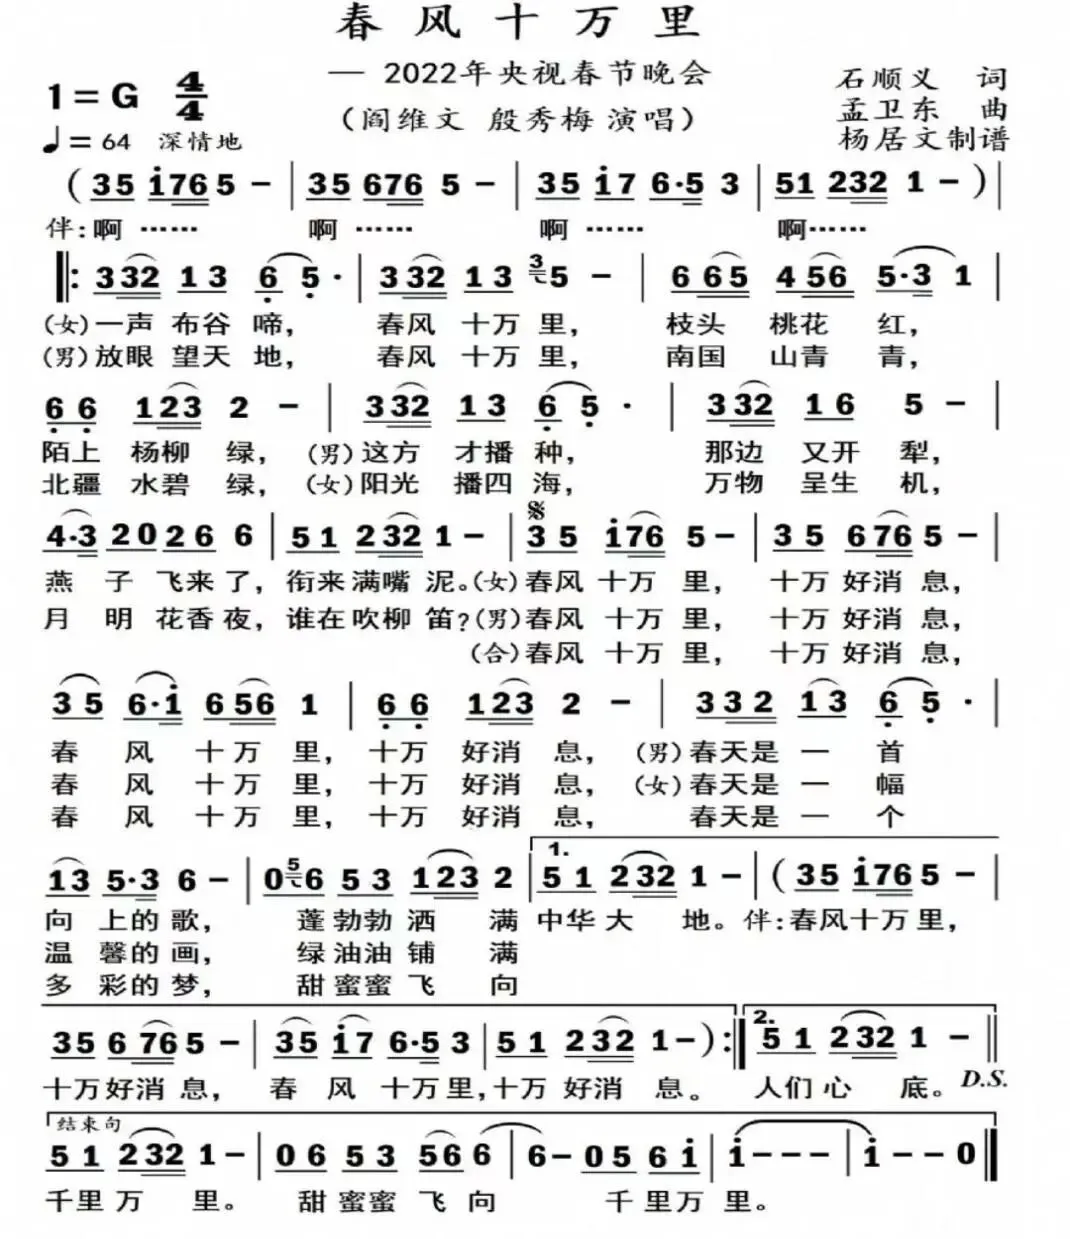 春风十万里
— 2022年央视春节晚会
（阎维文 殷秀梅 演唱）
石顺义 词
孟卫东 曲
杨居文制谱
1=G 4/4
♩=64 深情地
( 35 i765 - | 35 676 5 - | 35 i7 6·5 3 | 51 232 1 - ) |
伴:啊…… 啊…… 啊…… 啊……
‖: 332 13 6 5 · | 332 13 3 5 - | 665 456 5·3 1 |
(女)一声 布谷 啼, 春风 十万 里, 枝头 桃花 红,
(男)放眼 望天 地, 春风 十万 里, 南国 山青 青,
66 123 2 - | 332 13 6 5 · | 332 16 5 - |
陌上 杨柳 绿, (男)这方 才播 种, 那边 又开 犁,
北疆 水碧 绿, (女)阳光 播四 海, 万物 呈生 机,
4·3 20 26 6 | 51 232 1 - | 𝄋 35 i76 5 - | 35 676 5 - |
燕 子 飞来 了, 衔来满嘴 泥。(女)春风 十万 里, 十万 好消 息,
月 明 花香 夜, 谁在吹柳 笛?(男)春风 十万 里, 十万 好消 息,
(合)春风 十万 里, 十万 好消 息,
35 6·i 656 1 | 66 123 2 - | 332 13 6 5 · |
春 风 十万 里, 十万 好消 息, (男)春天是 一 首
春 风 十万 里, 十万 好消 息, (女)春天是 一 幅
春 风 十万 里, 十万 好消 息, 春天是 一 个
13 5·3 6 - | 0 5 6 53 123 2 | 1. 51 232 1 - | ( 35 i76 5 - |
向 上的 歌, 蓬勃勃 洒 满 中华 大 地。伴:春风十万 里,
温 馨的 画, 绿油油 铺 满
多 彩的 梦, 甜蜜蜜 飞 向
35 676 5 - | 35 i7 6·5 3 | 51 232 1 - ) :‖ 2. 51 232 1 - ‖
十万好消 息, 春 风 十万里,十万 好消 息。 人们 心 底。 D.S.
结束句
51 232 1 - | 06 53 56 6 | 6 - 05 6i | i - - - | i - - 0 ‖
千里 万 里。 甜蜜蜜 飞 向 千里万 里。